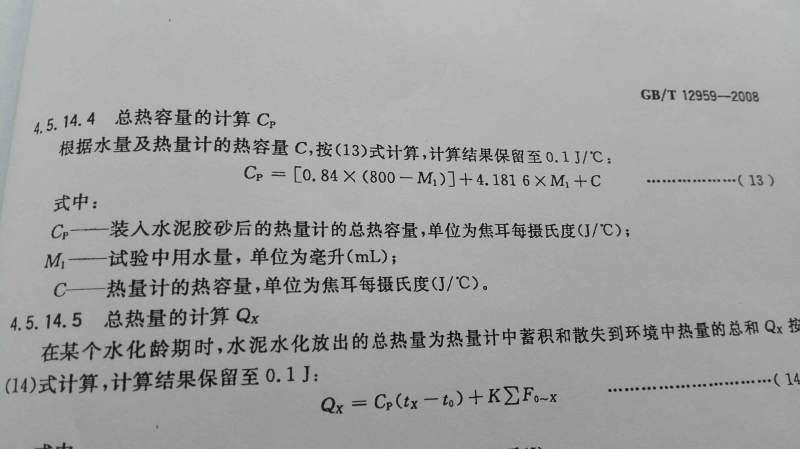 GB/T 12959—2008
4.5.14.4 总热容量的计算 Cₚ
根据水量及热量计的热容量 C,按(13)式计算,计算结果保留至 0.1 J/℃:
Cₚ = [0.84×(800−M₁)]+4.181 6×M₁+C ………………( 13 )
式中:
Cₚ——装入水泥胶砂后的热量计的总热容量,单位为焦耳每摄氏度(J/℃);
M₁——试验中用水量,单位为毫升(mL);
C——热量计的热容量,单位为焦耳每摄氏度(J/℃)。
4.5.14.5 总热量的计算 Qₓ
在某个水化龄期时,水泥水化放出的总热量为热量计中蓄积和散失到环境中热量的总和 Qₓ 按
(14)式计算,计算结果保留至 0.1 J:
Qₓ = Cₚ(tₓ−t₀)+K∑F₀~ₓ …………………………( 14